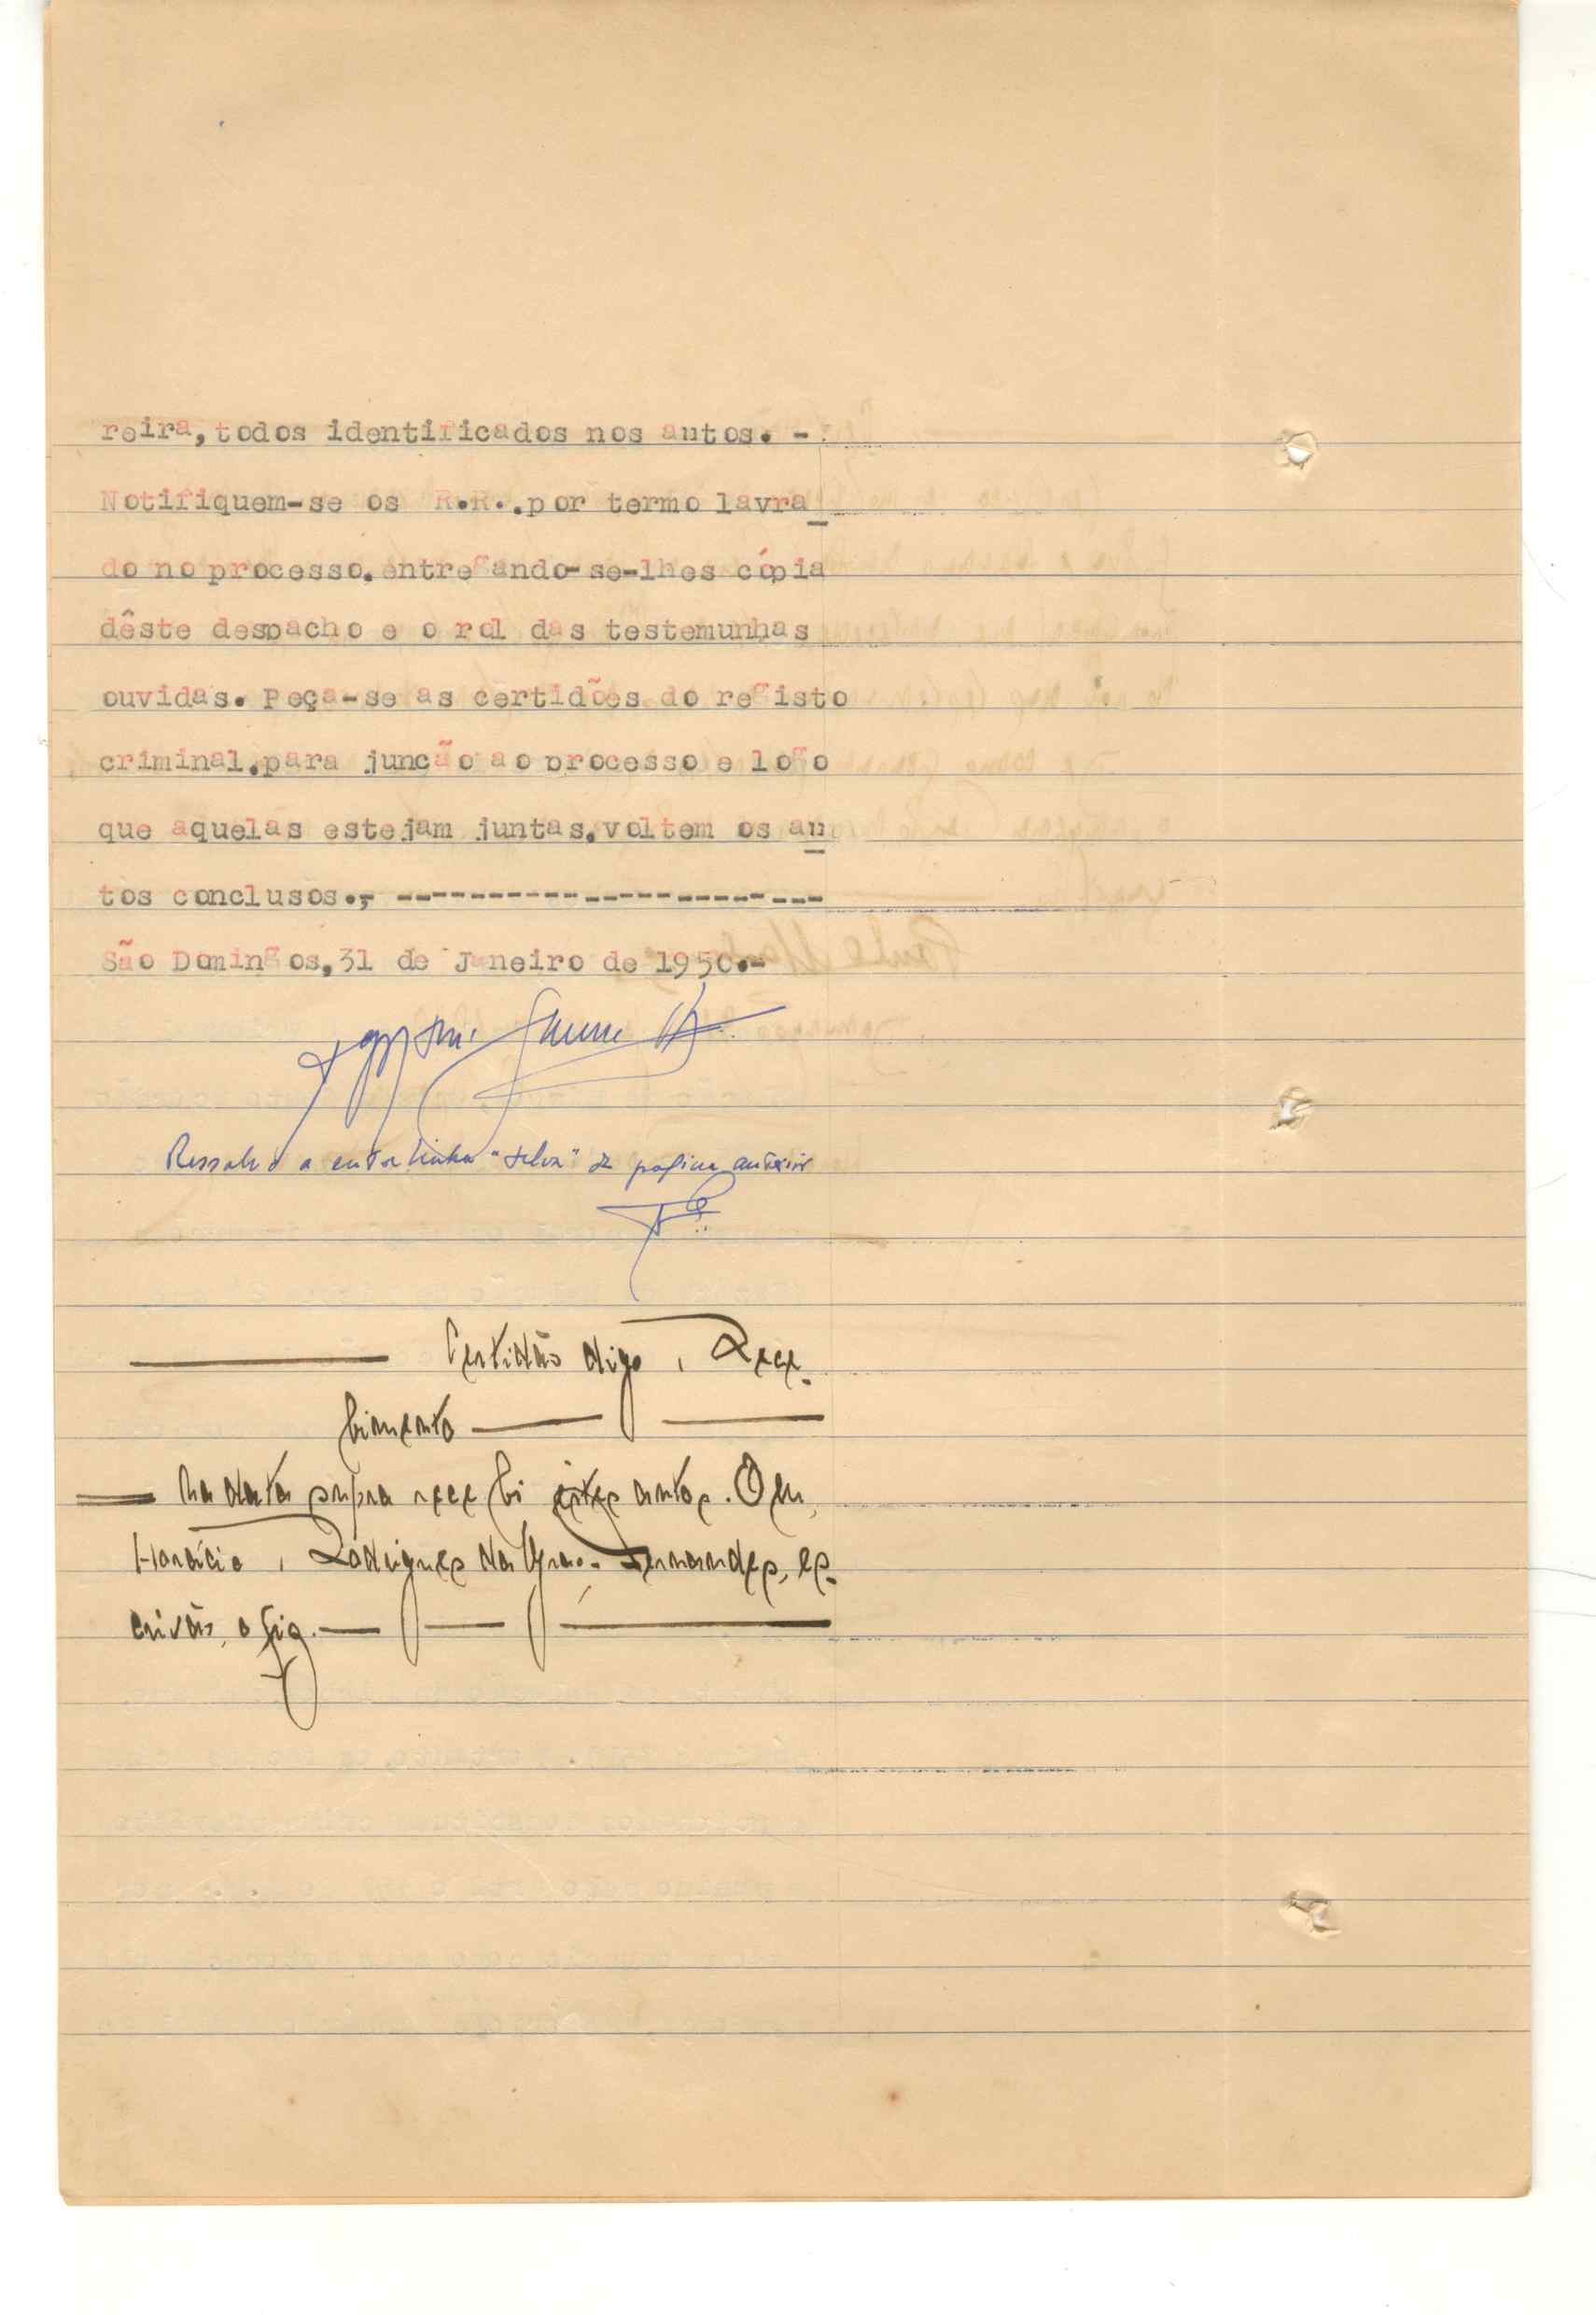 reira,todos identificados nos autos. -
Notifiquem-se os R.R.,por termo lavra
do no processo,entregando-se-lhes cópia
dêste despacho e o rol das testemunhas
ouvidas. Peça-se as certidões do registo
criminal,para junção ao processo e logo
que aquelas estejam juntas,voltem os au
tos conclusos.,- -----------------------
São Domingos,31 de Janeiro de 1950.-
Ressalvo a entrelinha "Silva" da pagina anterior
Certidão digo, Rece-
bimento
Na data supra recebi êstes autos. O eu,
Horácio, Rodrigues da Fernandes, es-
crivão, o